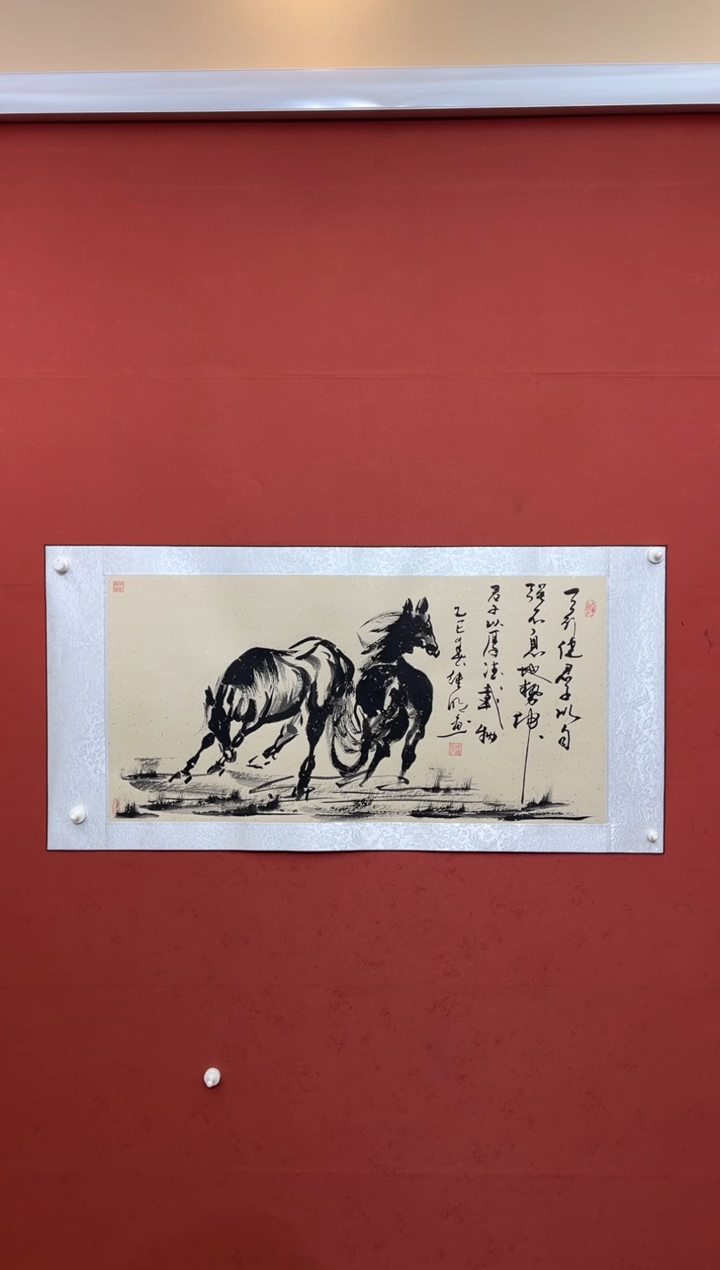 天行健君子以自
强不息地势坤
君子以厚德载物
乙巳春雄明画